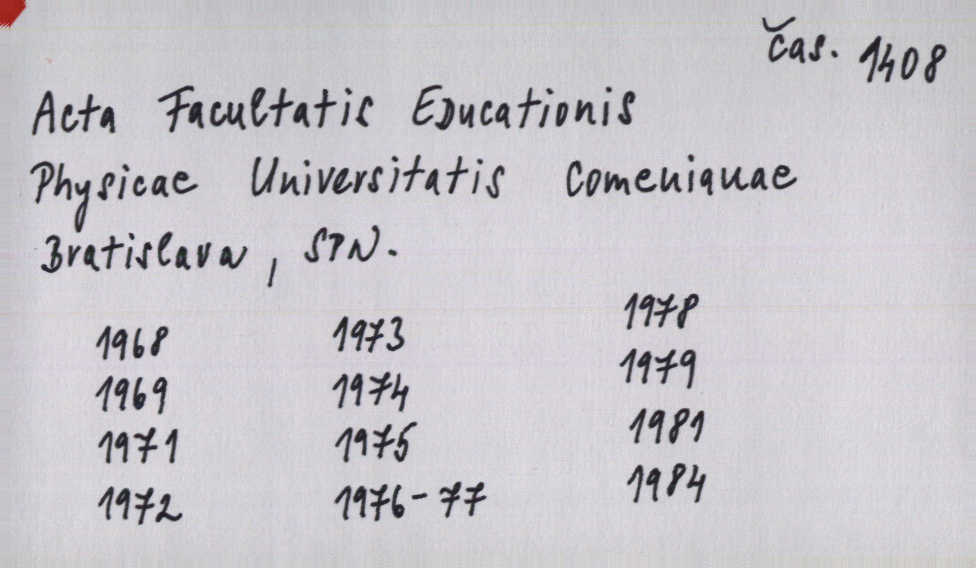 Čas. 1408
Acta Facultatis Educationis
Physicae Universitatis Comenianae
Bratislava, SPN.
1968 1973 1978
1969 1974 1979
1971 1975 1981
1972 1976-77 1984